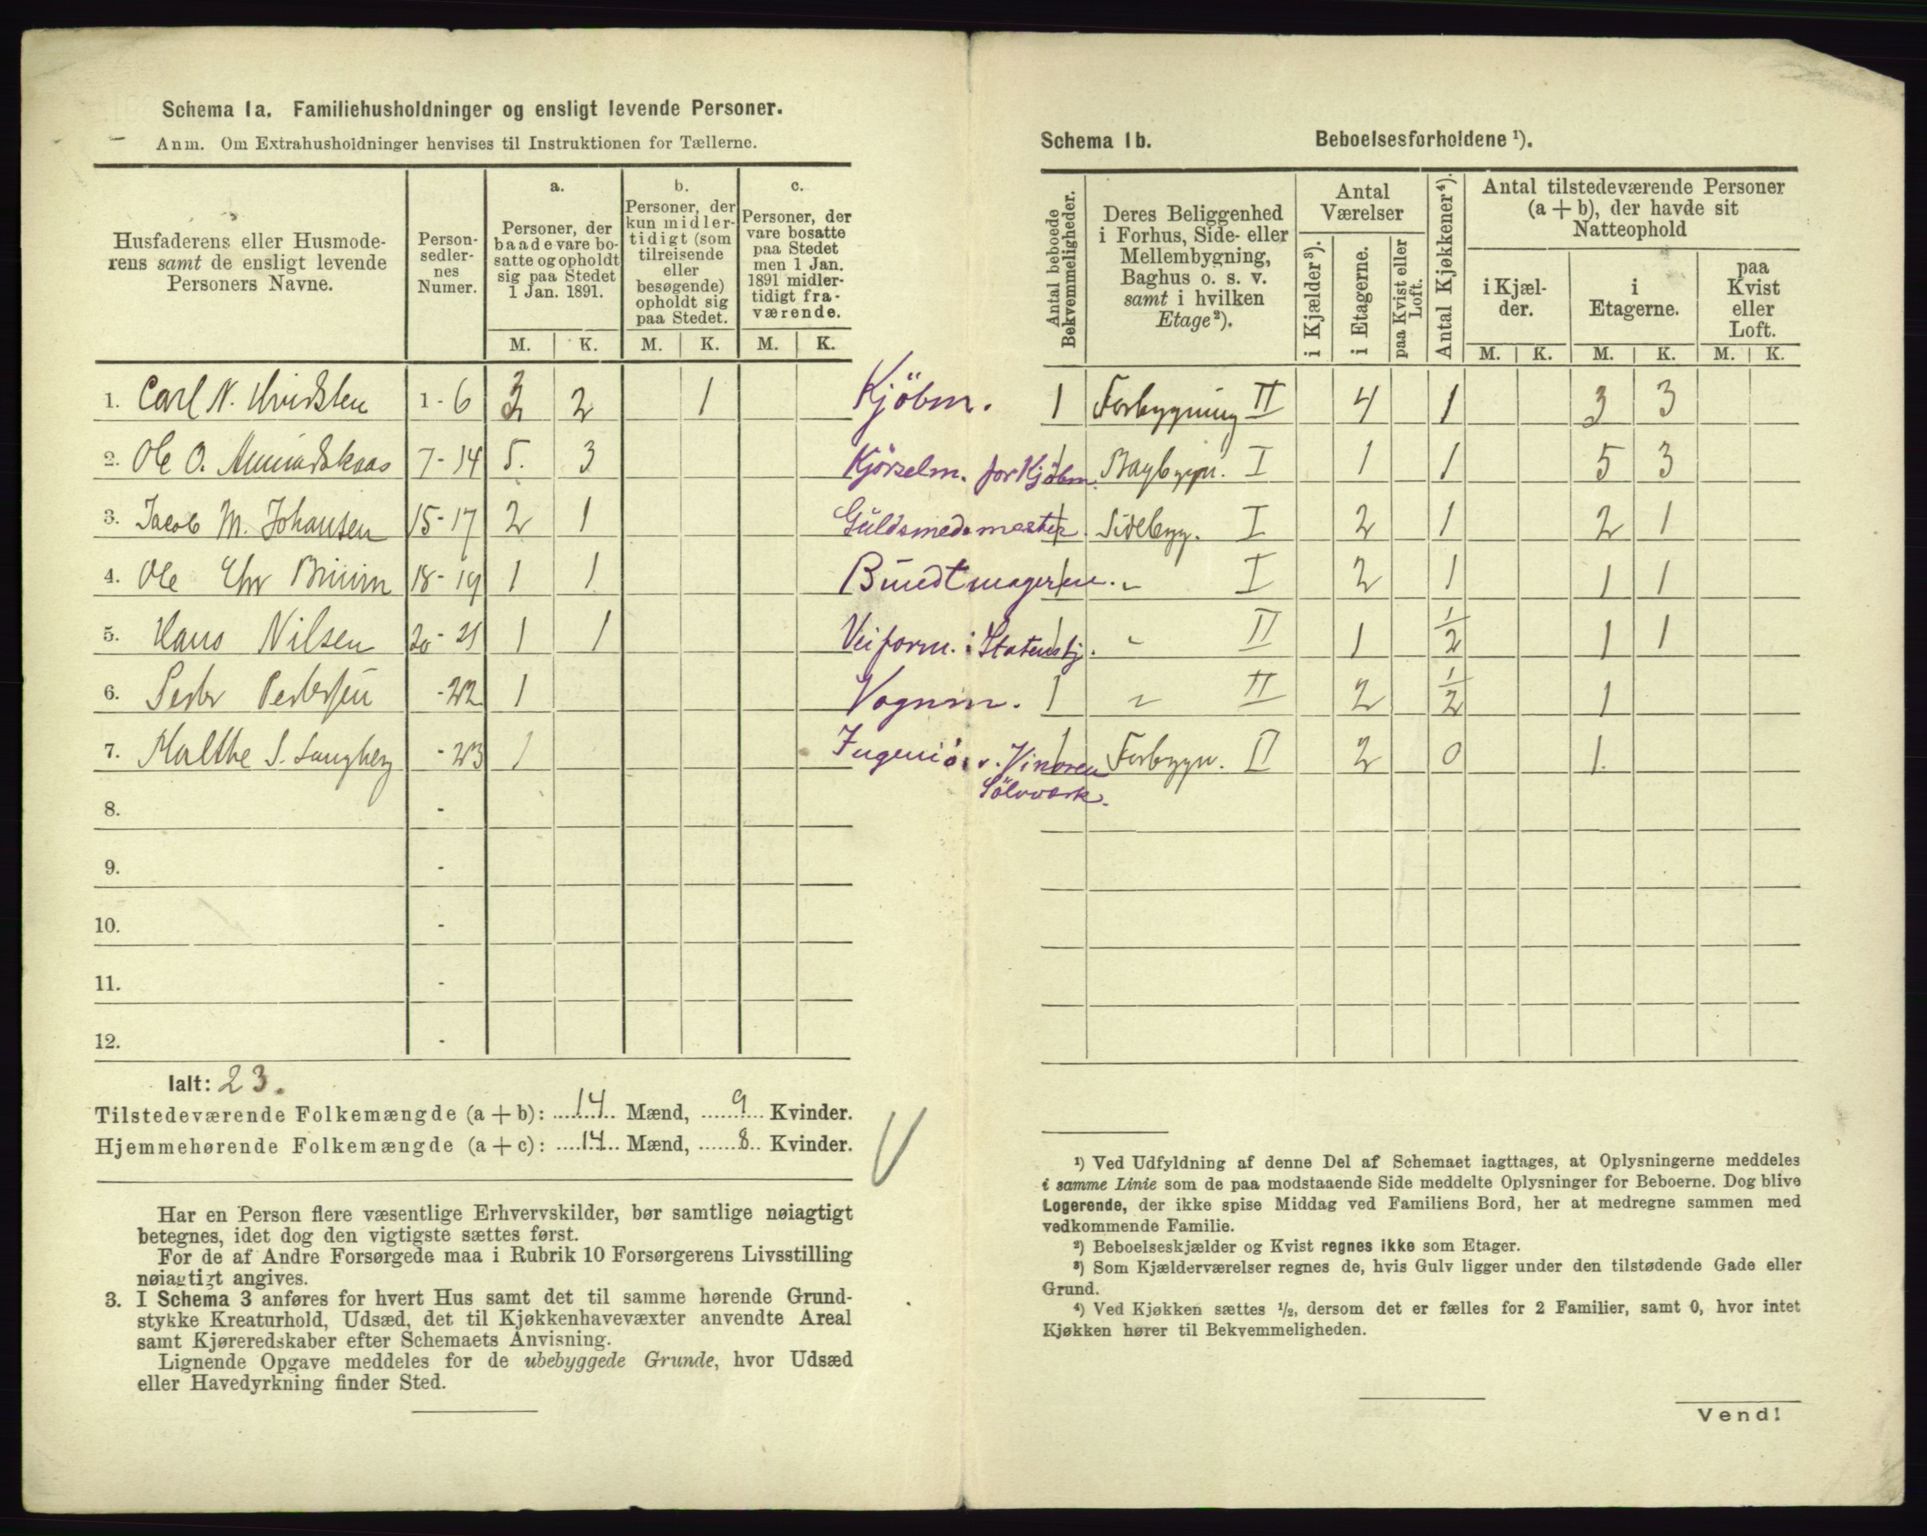 Schema 1a. Familiehusholdninger og ensligt levende Personer.
Anm. Om Extrahusholdninger henvises til Instruktionen for Tællerne.
Husfaderens eller Husmode-
rens samt de ensligt levende
Personers Navne.
Person-
sedler-
nes
Numer.
a.
Personer, der
baade vare bo-
satte og opholdt
sig paa Stedet
1 Jan. 1891.
b.
Personer, der
kun midler-
tidigt (som
tilreisende
eller
besøgende)
opholdt sig
paa Stedet.
c.
Personer, der
vare bosatte
paa Stedet
men 1 Jan.
1891 midler-
tidigt fra-
værende.
M. K. M. K. M. K.
1. Carl N. Hvidsten 1 - 6 3 2 1
2. Ole O. 7 - 14 5. 3
3. Jacob M. Johansen 15 - 17 2 1
4. Ole Chr Bruun 18 - 19 1 1
5. Hans Nilsen 20 - 21 1 1
6. Peder Pedersen - 22 1
7. Malthe S. Langberg - 23 1
8. -
9. -
10. -
11. -
12. -
Ialt: 23.
Tilstedeværende Folkemængde (a + b): 14 Mænd, 9 Kvinder.
Hjemmehørende Folkemængde (a + c): 14 Mænd, 8 Kvinder.
Har en Person flere væsentlige Erhvervskilder, bør samtlige nøiagtigt
betegnes, idet dog den vigtigste sættes først.
For de af Andre Forsørgede maa i Rubrik 10 Forsørgerens Livsstilling
nøiagtigt angives.
3. I Schema 3 anføres for hvert Hus samt det til samme hørende Grund-
stykke Kreaturhold, Udsæd, det til Kjøkkenhavevæxter anvendte Areal
samt Kjøreredskaber efter Schemaets Anvisning.
Lignende Opgave meddeles for de ubebyggede Grunde, hvor Udsæd
eller Havedyrkning finder Sted.
Schema 1b. Beboelsesforholdene ¹).
Antal beboede
Bekvemmeligheder.
Deres Beliggenhed
i Forhus, Side- eller
Mellembygning,
Baghus o. s. v.
samt i hvilken
Etage²).
Antal
Værelser
i Kjælder³).
i Etagerne.
paa Kvist eller
Loft.
Antal Kjøkkener⁴).
Antal tilstedeværende Personer
(a + b), der havde sit
Natteophold
i Kjæl-
der.
i
Etagerne.
paa
Kvist
eller
Loft.
M. K. M. K. M. K.
Kjöbm. 1 Forbygning II 4 1 3 3
Kjörselm. for Kjöbm. 1 Bagbygn. I 1 1 5 3
Guldsmedsmester. 1 Sidebyg. I 2 1 2 1
Bundtmagersv. 1 " I 2 1 1 1
Veiform. i Statens tj. 1 " II 1 1/2 1 1
Vognm. 1 " II 2 1/2 1
Ingeniör v. Vinoren 1 Forbygn. II 2 0 1.
Sölvværk.
¹) Ved Udfyldning af denne Del af Schemaet iagttages, at Oplysningerne meddeles
i samme Linie som de paa modstaaende Side meddelte Oplysninger for Beboerne. Dog blive
Logerende, der ikke spise Middag ved Familiens Bord, her at medregne sammen med
vedkommende Familie.
²) Beboelseskjælder og Kvist regnes ikke som Etager.
³) Som Kjælderværelser regnes de, hvis Gulv ligger under den tilstødende Gade eller
Grund.
⁴) Ved Kjøkken sættes ½, dersom det er fælles for 2 Familier, samt 0, hvor intet
Kjøkken hører til Bekvemmeligheden.
Vend!